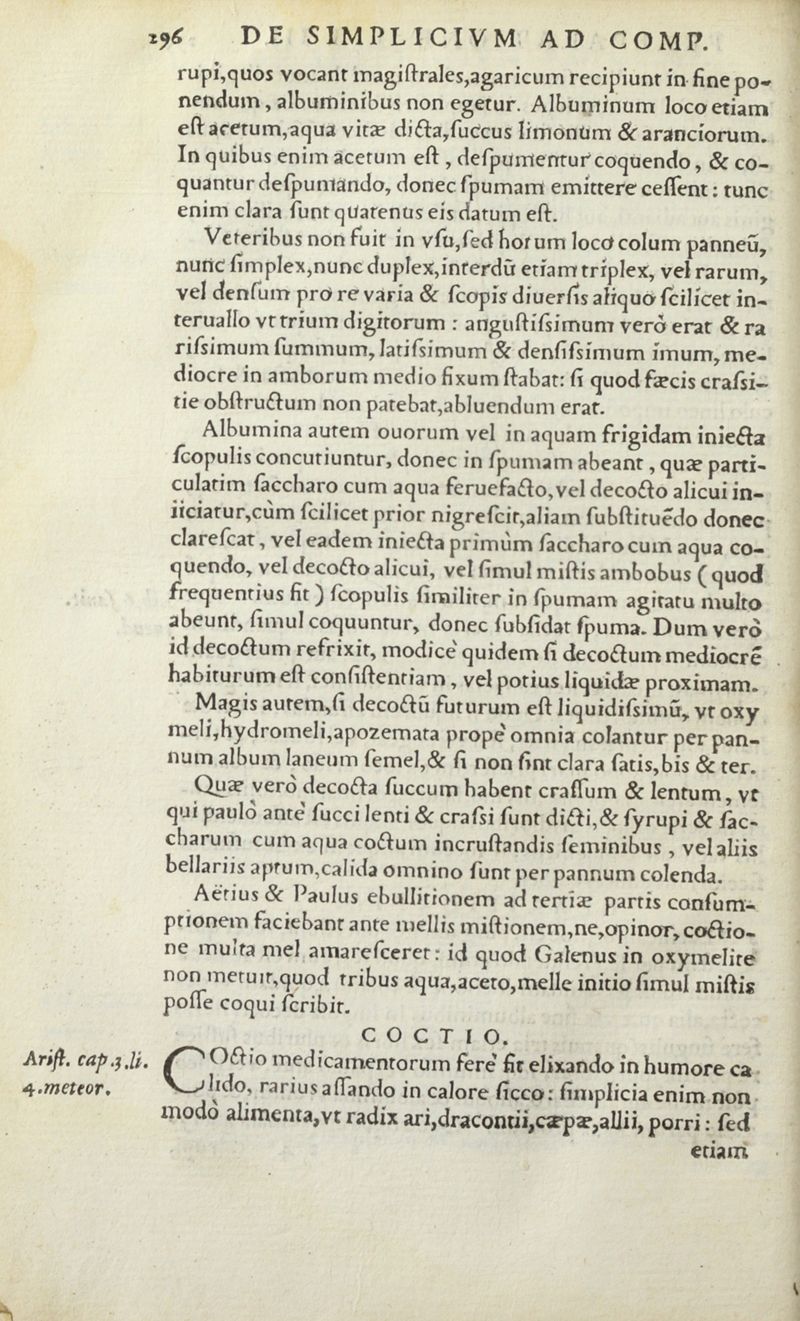 296 DE SIMPLICIVM AD COMP.
rupi,quos vocant magiſtrales,agaricum recipiunt in fine po-
nendum, albuminibus non egetur. Albuminum loco etiam
eſt acetum,aqua vitæ dicta,ſuccus limonum & aranciorum.
In quibus enim acetum eſt, deſpumentur coquendo, & co-
quantur deſpumando, donec ſpumam emittere ceſſent: tunc
enim clara ſunt quatenus eis datum eſt.
Veteribus non fuit in vſu,ſed horum loco colum panneū,
nunc ſimplex,nunc duplex,interdū etiam triplex, vel rarum,
vel denſum pro re varia & ſcopis diuerſis aliquo ſcilicet in-
teruallo vt trium digitorum : anguſtiſsimum verò erat & ra
riſsimum ſummum, latiſsimum & denſiſsimum imum, me-
diocre in amborum medio fixum ſtabat: ſi quod fæcis craſsi-
tie obſtructum non patebat,abluendum erat.
Albumina autem ouorum vel in aquam frigidam iniecta
ſcopulis concutiuntur, donec in ſpumam abeant, quæ parti-
culatim ſaccharo cum aqua feruefacto,vel decocto alicui in-
iiciatur,cùm ſcilicet prior nigreſcit,aliam ſubſtituēdo donec
clareſcat, vel eadem iniecta primùm ſaccharo cum aqua co-
quendo, vel decocto alicui, vel ſimul miſtis ambobus (quod
frequentius fit) ſcopulis ſimiliter in ſpumam agitatu multo
abeunt, ſimul coquuntur, donec ſubſidat ſpuma. Dum verò
id decoctum refrixit, modicè quidem ſi decoctum mediocrē
habiturum eſt conſiſtentiam, vel potius liquidæ proximam.
Magis autem,ſi decoctū futurum eſt liquidiſsimū, vt oxy
meli,hydromeli,apozemata propè omnia colantur per pan-
num album laneum ſemel,& ſi non ſint clara ſatis,bis & ter.
Quæ verò decocta ſuccum habent craſſum & lentum, vt
qui paulò antè ſucci lenti & craſsi ſunt dicti,& ſyrupi & ſac-
charum cum aqua coctum incruſtandis ſeminibus, vel aliis
bellariis aptum,calida omnino ſunt per pannum colenda.
Aëtius & Paulus ebullitionem ad tertiæ partis conſum-
ptionem faciebant ante mellis miſtionem,ne,opinor,coctio-
ne multa mel amareſceret: id quod Galenus in oxymelite
non metuit,quod tribus aqua,aceto,melle initio ſimul miſtis
poſſe coqui ſcribit.
COCTIO.
Ariſt. cap.3.li.
4.meteor.
COctio medicamentorum ferè fit elixando in humore ca
lido, rarius aſſando in calore ſicco: ſimplicia enim non
modò alimenta,vt radix ari,dracontii,cæpæ,allii, porri: ſed
etiam